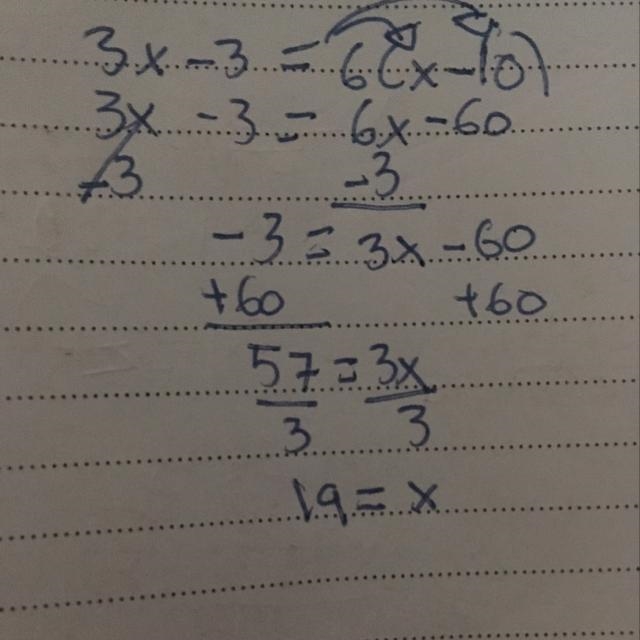 3x - 3 = 6(x - 10)
3x - 3 = 6x - 60
-3 -3
- 3 = 3x - 60
+60 +60
57 = 3x
3 3
19 = x